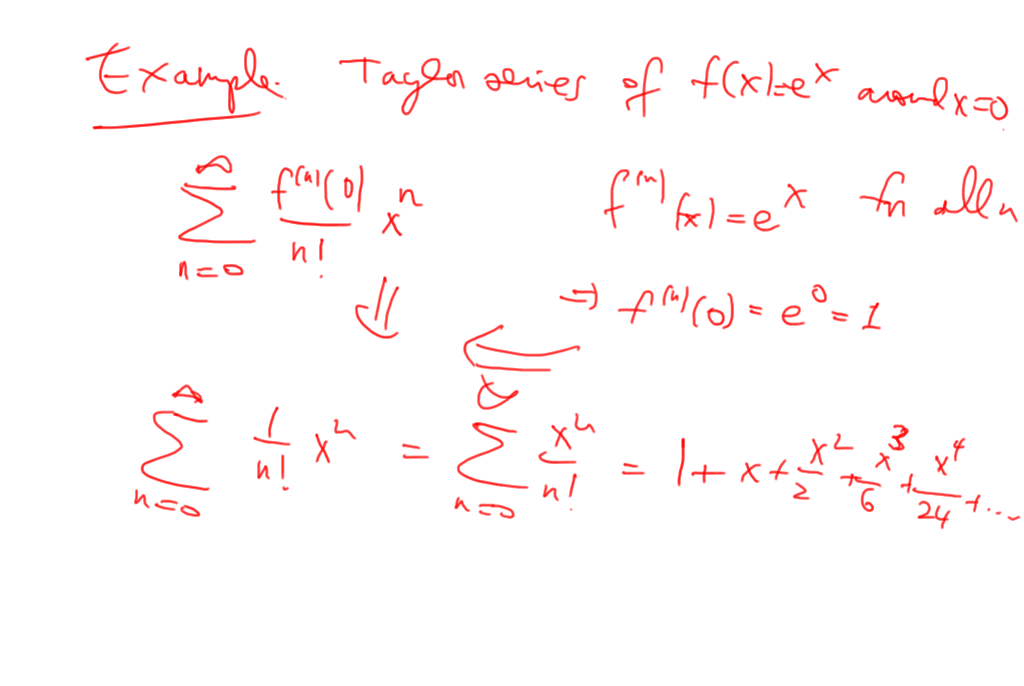 Example. Taylor series of f(x)=e^x around x=0
∑_{n=0}^{∞} f^{(n)}(0)/n! x^n    f^{(n)}(x) = e^x for all n
⇓    ⇒ f^{(n)}(0) = e^0 = 1
⇐
∑_{n=0}^{∞} 1/n! x^n = ∑_{n=0}^{∞} x^n/n! = 1 + x + x^2/2 + x^3/6 + x^4/24 + ...